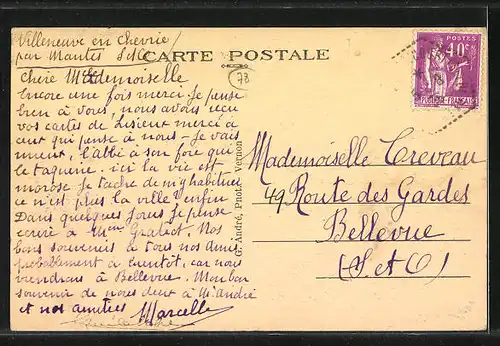 Villeneuve en Chevrie
par Mantes S&O
CARTE POSTALE
78
POSTES
40c
Chère Mademoiselle
Encore une fois merci je pense
bien à vous, nous avons reçu
vos cartes de Lisieux merci à
ceux qui pense à nous - je vais
l'abbé a son foie qui
le taquine. ici la vie est
morose je tache de m'y habituer
ce n'est plus la ville enfin
Dans quelques jours je pense
écrire à Nos
bons souvenirs à tous nos amis
probablement à bientôt, car nous
viendrons à Bellevue. Mon bon
souvenir de nous deux à Mr André
et nos amitiés Marcelle
G. André, Photo. Vernon
Mademoiselle Creveau
49 Route des Gardes
Bellevue
(S et O)